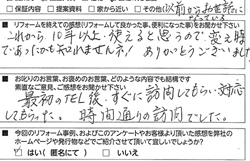 □保証内容 □提案資料 □家から近い ☑その他(以前からお世話に
なっている
■リフォームを終えての感想(リフォームして良かった事、便利になった事)をお聞かせ下さい
これから10年以上使えると思うので変え時
であったかも知れません! ありがとうございました
■お叱りのご意見、お褒めのお言葉、どのような内容でも結構です
素直なご意見、ご感想をお聞かせください
最初のTEL後、すぐに訪問してもらい対応
してもらった。時間通りの訪問でした。
■今回のリフォーム事例、およびこのアンケートやお客様より頂いた感想を弊社の
ホームページや発行物などでご紹介させて頂いて宜しいでしょうか?
☑はい(匿名にて) □いいえ